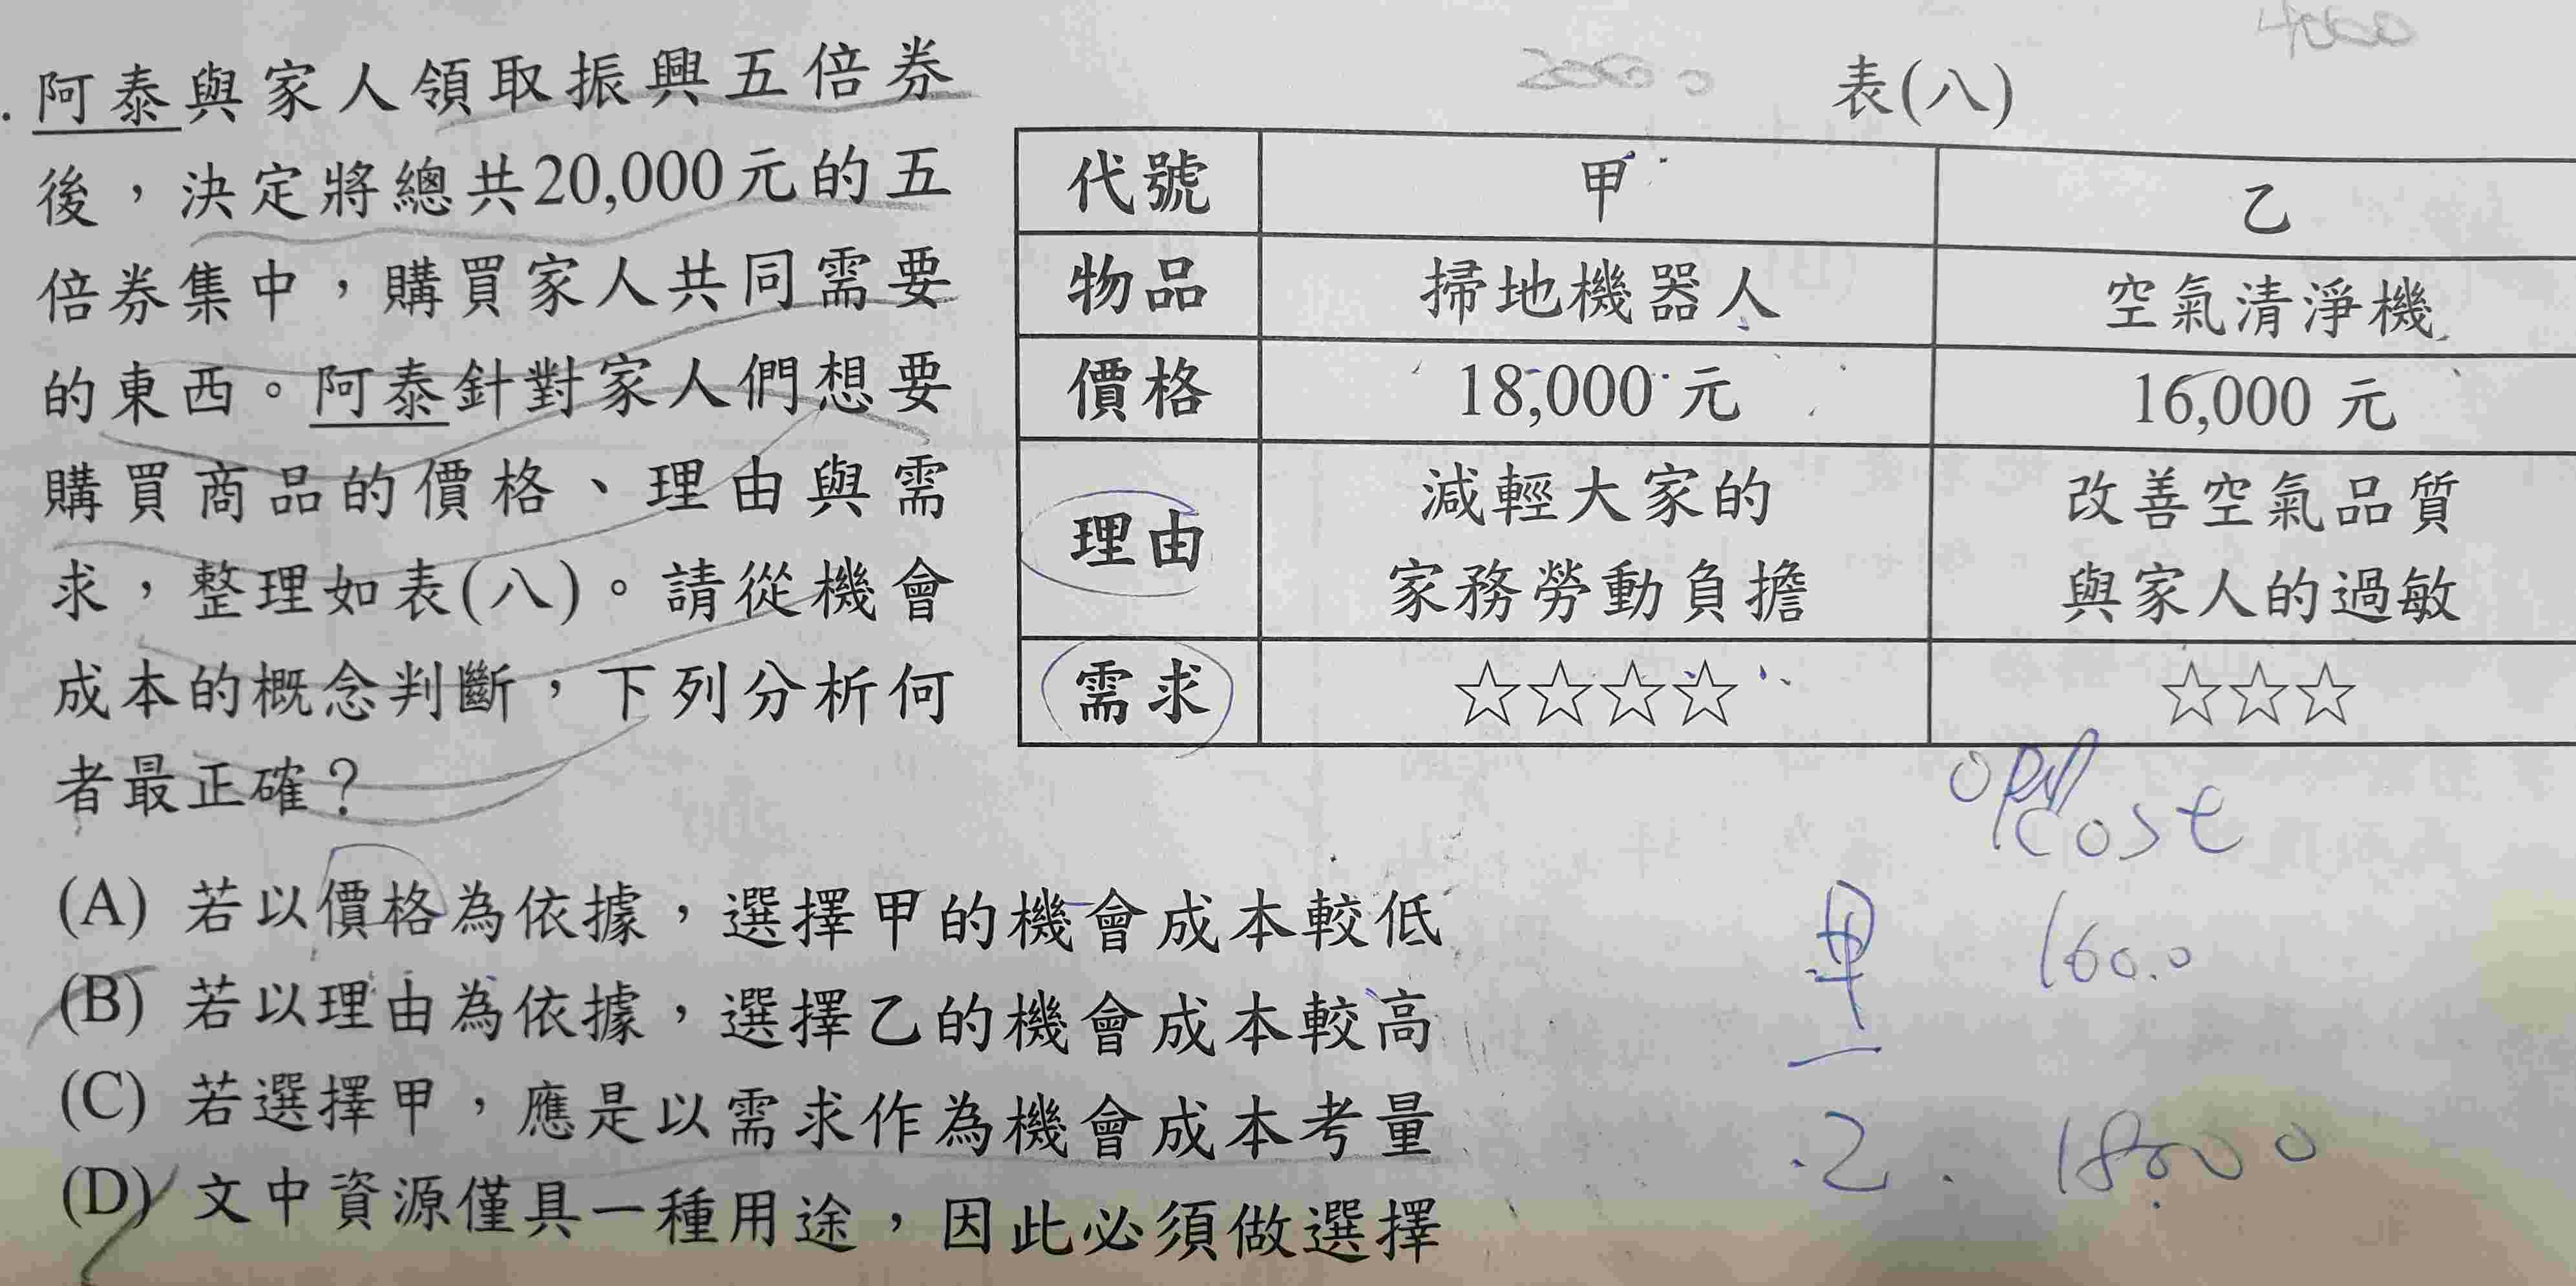 阿泰與家人領取振興五倍券
後，決定將總共20,000元的五
倍券集中，購買家人共同需要
的東西。阿泰針對家人們想要
購買商品的價格、理由與需
求，整理如表(八)。請從機會
成本的概念判斷，下列分析何
者最正確？
表(八)
代號 甲 乙
物品 掃地機器人 空氣清淨機
價格 18,000元 16,000元
理由 減輕大家的 改善空氣品質
家務勞動負擔 與家人的過敏
需求 ☆☆☆☆ ☆☆☆
(A) 若以價格為依據，選擇甲的機會成本較低
(B) 若以理由為依據，選擇乙的機會成本較高
(C) 若選擇甲，應是以需求作為機會成本考量
(D) 文中資源僅具一種用途，因此必須做選擇
cost
甲 16000
乙. 18000